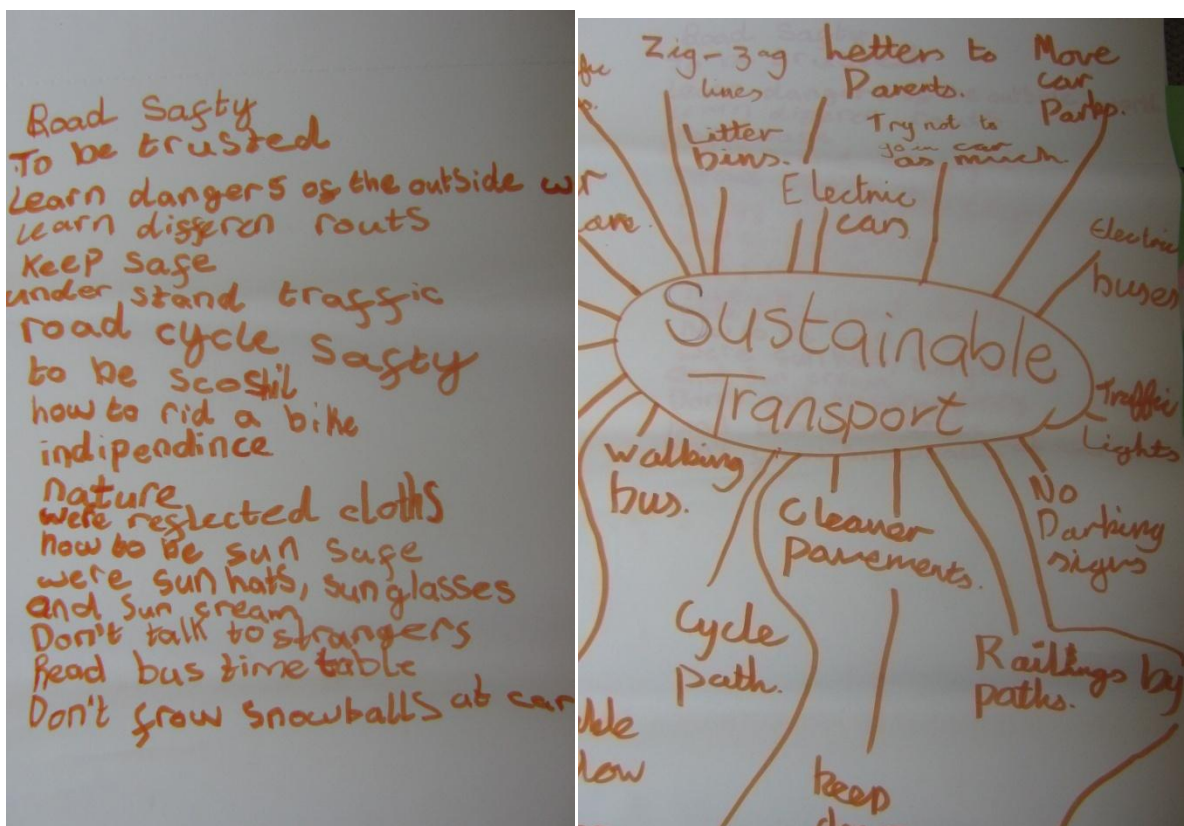 Road Safty
To be trusted
Learn dangers of the outside w
Learn differen routs
Keep safe
under stand traffic
road cycle safty
to be
how to rid a bike
indipendince
nature
were reflected cloths
how to be sun safe
were sun hats, sunglasses
and sun cream
Don't talk to strangers
Read bus time table
Don't frow snowballs at car
Zig-zag
lines
Letters to
Parents.
Move
car
Parks.
Litter
bins.
Try not to
go in car
as much.
Electric
cars
Electric
buses
Sustainable
Transport
Traffic
Lights
Walking
bus.
Cleaner
pavements.
No
Parking
signs
Cycle
path.
Railings by
paths.
keep